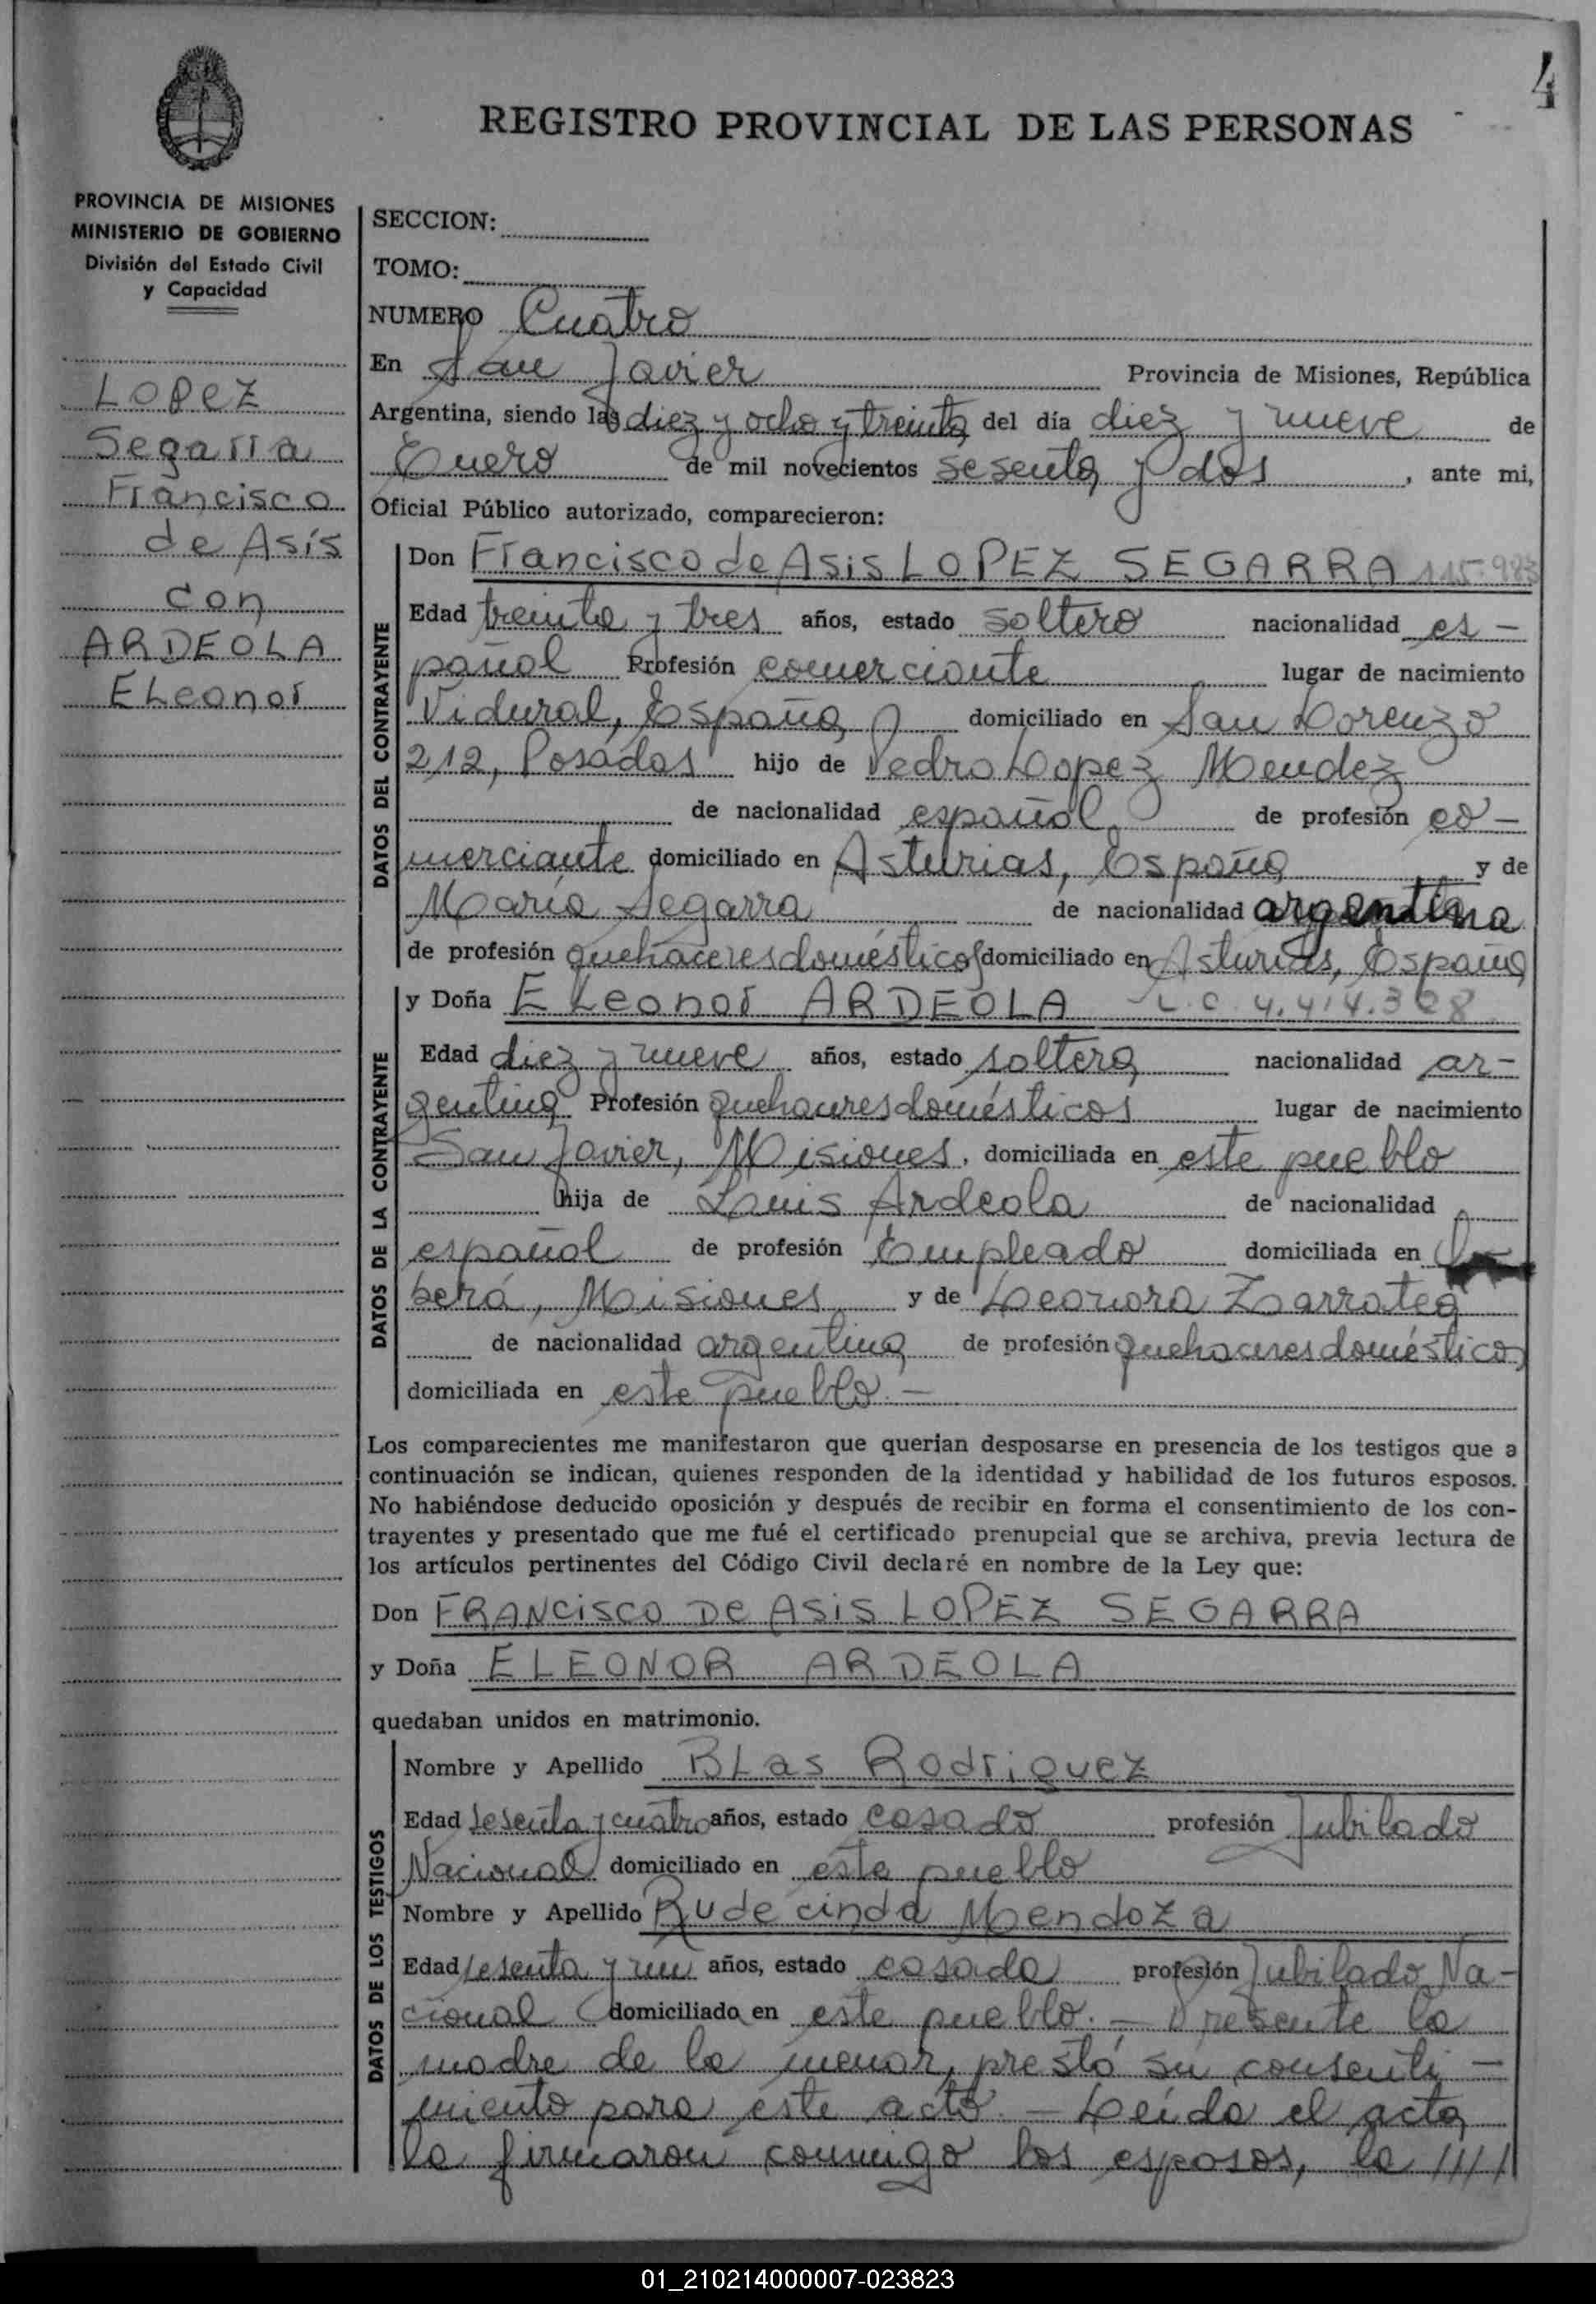 4
REGISTRO PROVINCIAL DE LAS PERSONAS
PROVINCIA DE MISIONES
MINISTERIO DE GOBIERNO
División del Estado Civil
y Capacidad
Lopez
Segarra
Francisco
de Asís
con
ARDEOLA
ELeonor
SECCION:
TOMO:
NUMERO Cuatro
En San Javier Provincia de Misiones, República
Argentina, siendo las diez y ocho y treinta del día diez y nueve de
Enero de mil novecientos sesenta y dos, ante mi,
Oficial Público autorizado, comparecieron:
DATOS DEL CONTRAYENTE
Don Francisco de Asis LOPEZ SEGARRA 115.983
Edad treinta y tres años, estado soltero nacionalidad es-
pañol Profesión comerciante lugar de nacimiento
Vidural, España domiciliado en San Lorenzo
212, Posadas hijo de Pedro Lopez Mendez
de nacionalidad español de profesión co-
merciante domiciliado en Asturias, España y de
María Segarra de nacionalidad argentina
de profesión quehaceres domésticos domiciliado en Asturias, España
DATOS DE LA CONTRAYENTE
y Doña ELeonor ARDEOLA L.C. 4.414.328
Edad diez y nueve años, estado soltera nacionalidad ar-
gentina Profesión quehaceres domésticos lugar de nacimiento
San Javier, Misiones, domiciliada en este pueblo
hija de Luis Ardeola de nacionalidad
español de profesión Empleado domiciliada en
berá, Misiones y de Leonora Zarratea
de nacionalidad argentina de profesión quehaceres domésticos
domiciliada en este pueblo.-
Los comparecientes me manifestaron que querían desposarse en presencia de los testigos que a
continuación se indican, quienes responden de la identidad y habilidad de los futuros esposos.
No habiéndose deducido oposición y después de recibir en forma el consentimiento de los con-
trayentes y presentado que me fué el certificado prenupcial que se archiva, previa lectura de
los artículos pertinentes del Código Civil declaré en nombre de la Ley que:
Don FRANCISCO DE ASIS LOPEZ SEGARRA
y Doña ELEONOR ARDEOLA
quedaban unidos en matrimonio.
DATOS DE LOS TESTIGOS
Nombre y Apellido BLas Rodriguez
Edad sesenta y cuatro años, estado casado profesión Jubilado
Nacional domiciliado en este pueblo
Nombre y Apellido Rudecinda Mendoza
Edad sesenta y un años, estado casada profesión Jubilado Na-
cional domiciliada en este pueblo. - Presente la
madre de la menor, prestó su consenti-
miento para este acto. - Leída el acta
la firmaron conmigo los esposos, la ////
01_210214000007-023823